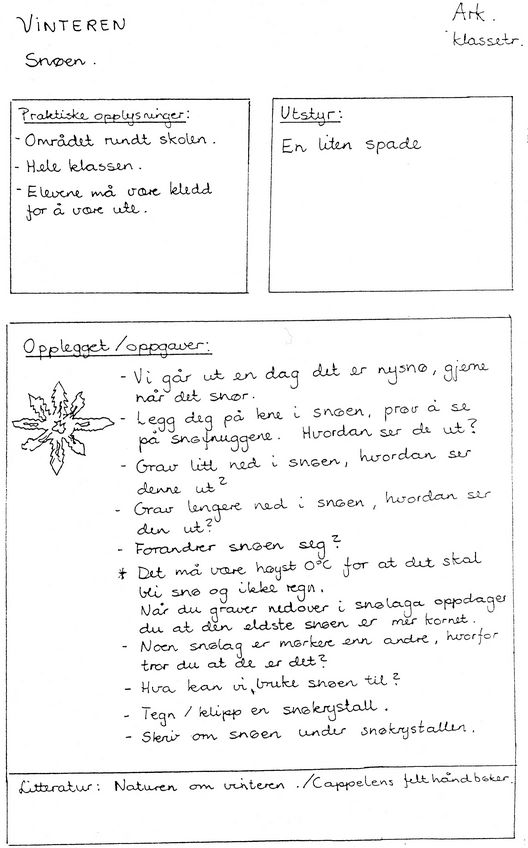 VINTEREN
Snøen.
Ark.
klassetr.
Praktiske opplysninger:
- Området rundt skolen.
- Hele klassen.
- Elevene må være kledd
for å være ute.
Utstyr:
En liten spade
Opplegget/oppgaver:
- Vi går ut en dag det er nysnø, gjerne
når det snør.
- Legg deg på kne i snøen, prøv å se
på snøfnuggene. Hvordan ser de ut?
- Grav litt ned i snøen, hvordan ser
denne ut?
- Grav lengere ned i snøen, hvordan ser
den ut?
- Forandrer snøen seg?
* Det må være høyst 0°C for at det skal
bli snø og ikke regn.
Når du graver nedover i snølaga oppdager
du at den eldste snøen er mer kornet.
- Noen snølag er mørkere enn andre, hvorfor
tror du at de er det?
- Hva kan vi bruke snøen til?
- Tegn / klipp en snøkrystall.
- Skriv om snøen under snøkrystallen.
Litteratur: Naturen om vinteren ./Cappelens felthåndbøker.